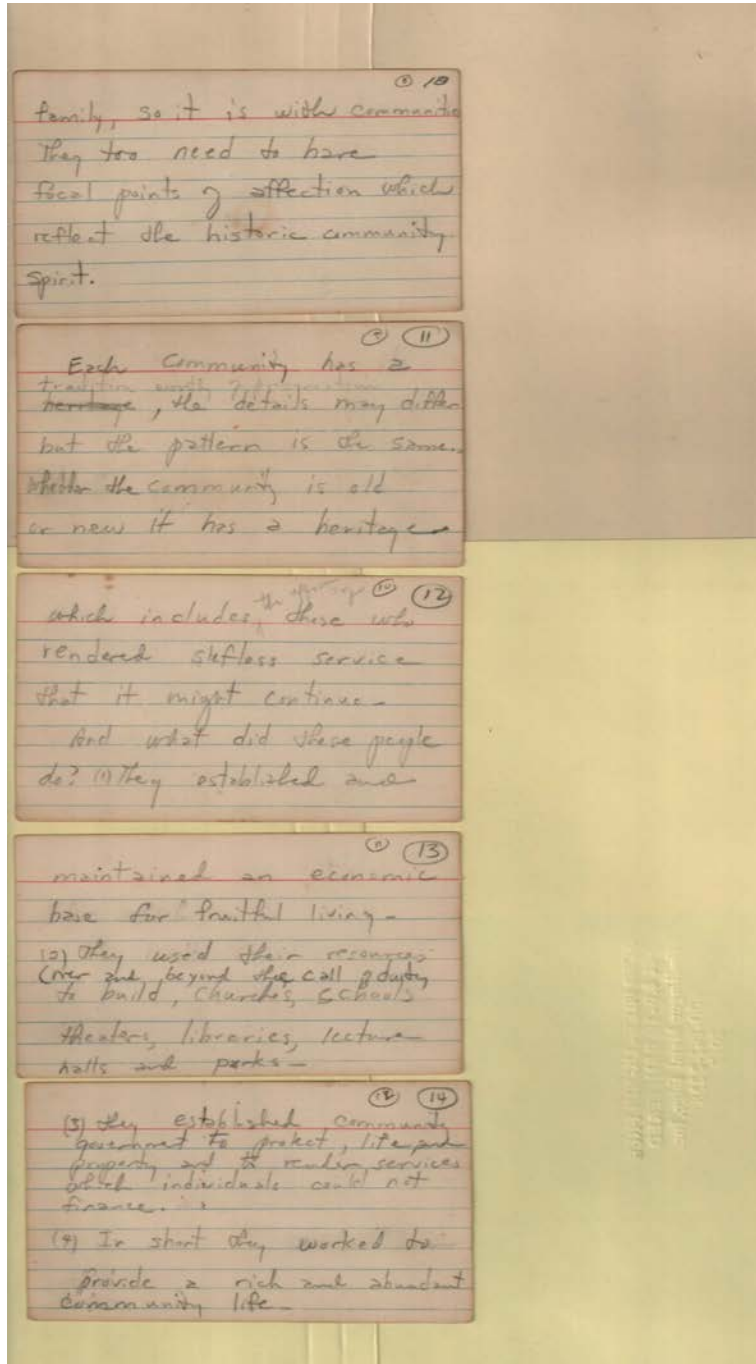 ⑨ 10
family, so it is with communitie
They too need to have
focal points of affection which
reflect the historic community
spirit.
⑨ 11
Each Community has a
tradition worth
heritage, the details may differ
but the pattern is the same.
Whether the community is old
or new it has a heritage
⑩ 12
which includes, the those who
rendered slefless service
that it might continue.
And what did these people
do? (1) They established and
⑪ 13
maintained an economic
base for fruitful living -
(2) They used their resources
(over and beyond the call of duty
to build, Churches, Schools
theaters, libraries, lecture
halls and parks -
14
(3) they established community
government to protect, life and
property and to render services
which individuals could not
finance.
(4) In short they worked to
provide a rich and abundant
community life -